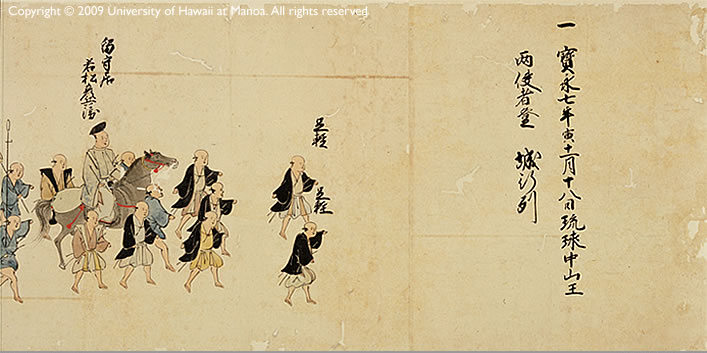 Copyright © 2009 University of Hawaii at Manoa. All rights reserved.
一 寶永七年寅十一月十八日琉球中山王
両使者登 城行列
足軽
足軽
留守居
若松